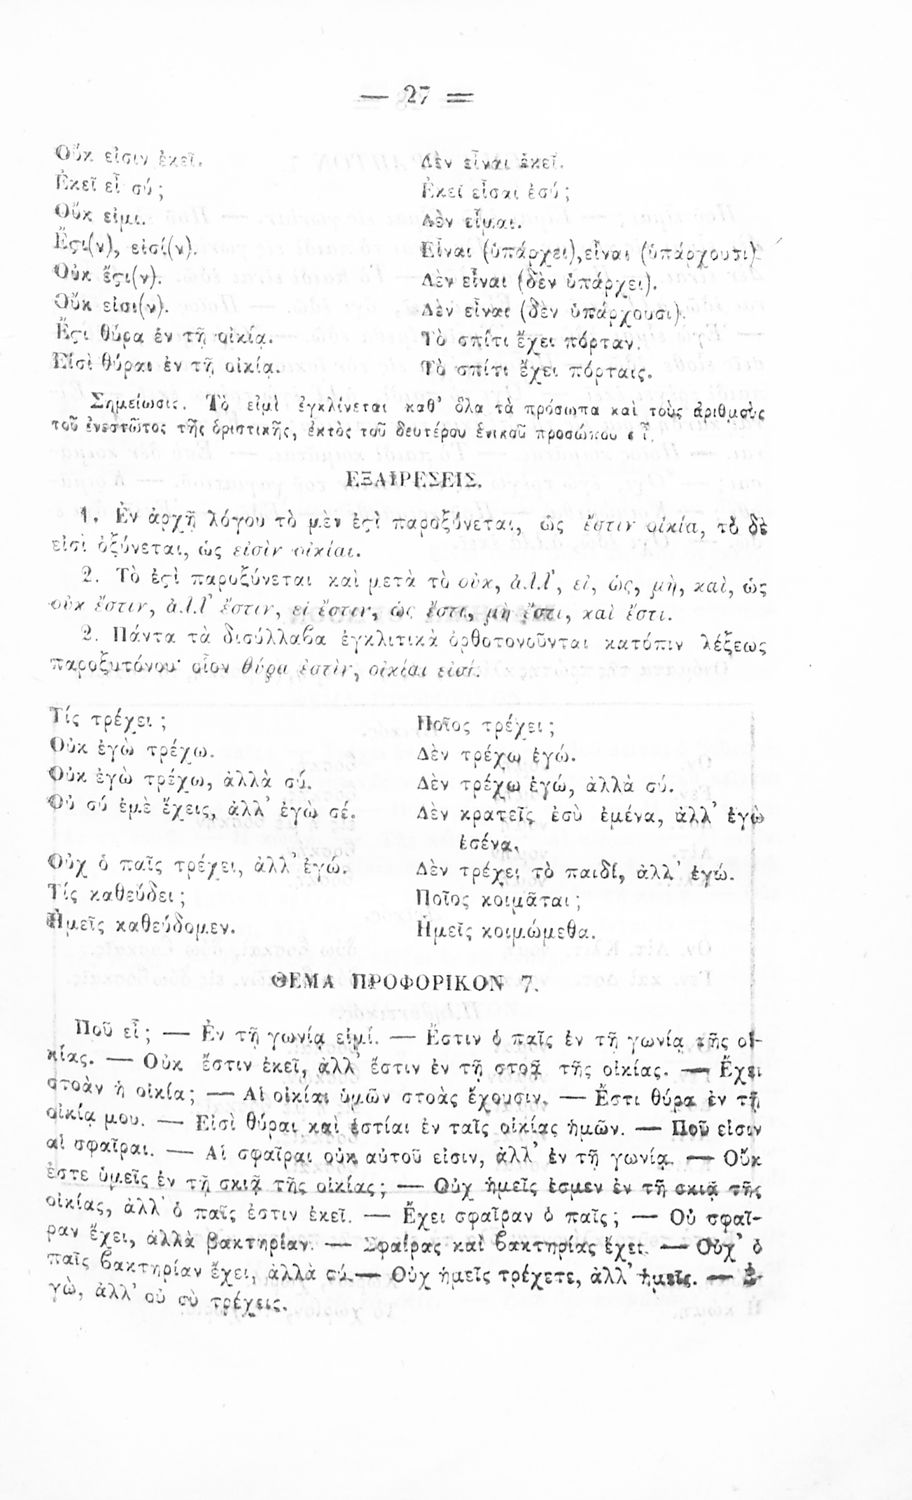 — 27 =
Οὔκ εἰσιν ἐκεῖ. Δὲν εἶναι ἐκεῖ.
Ἐκεῖ εἶ σύ; Ἐκεῖ εἶσαι ἐσύ;
Οὔκ εἰμι. Δὲν εἶμαι.
Ἔϛι(ν), εἰσί(ν). Εἶναι (ὑπάρχει), εἶναι (ὑπάρχουσι).
Οὐκ ἔϛι(ν). Δὲν εἶναι (δὲν ὑπάρχει).
Οὔκ εἰσι(ν). Δὲν εἶναι (δὲν ὑπάρχουσι).
Ἔϛι θύρα ἐν τῇ οἰκίᾳ. Τὸ σπίτι ἔχει πόρταν.
Εἰσὶ θύραι ἐν τῇ οἰκίᾳ. Τὸ σπίτι ἔχει πόρταις.
Σημείωσις. Τὸ εἰμὶ ἐγκλίνεται καθ' ὅλα τὰ πρόσωπα καὶ τοὺς ἀριθμοὺς
τοῦ ἐνεστῶτος τῆς ὁριστικῆς, ἐκτὸς τοῦ δευτέρου ἑνικοῦ προσώπου εἶ.
ΕΞΑΙΡΕΣΕΙΣ.
1. Ἐν ἀρχῇ λόγου τὸ μὲν ἐϛὶ παροξύνεται, ὡς ἔστιν οἰκία, τὸ δὲ
εἰσὶ ὀξύνεται, ὡς εἰσὶν οἰκίαι.
2. Τὸ ἐϛὶ παροξύνεται καὶ μετὰ τὸ οὐκ, ἀλλ', εἰ, ὡς, μὴ, καὶ, ὡς
οὐκ ἔστιν, ἀλλ' ἔστιν, εἰ ἔστιν, ὡς ἔστι, μὴ ἔστι, καὶ ἔστι.
2. Πάντα τὰ δισύλλαβα ἐγκλιτικὰ ὀρθοτονοῦνται κατόπιν λέξεως
παροξυτόνου· οἷον θύρα ἐστὶν, οἰκίαι εἰσί.
Τίς τρέχει; Ποῖος τρέχει;
Οὐκ ἐγὼ τρέχω. Δὲν τρέχω ἐγώ.
Οὐκ ἐγὼ τρέχω, ἀλλὰ σύ. Δὲν τρέχω ἐγώ, ἀλλὰ σύ.
Οὐ σύ ἐμὲ ἔχεις, ἀλλ' ἐγὼ σέ. Δὲν κρατεῖς ἐσὺ ἐμένα, ἀλλ' ἐγὼ
ἐσένα.
Οὐχ ὁ παῖς τρέχει, ἀλλ' ἐγώ. Δὲν τρέχει τὸ παιδί, ἀλλ' ἐγώ.
Τίς καθεύδει; Ποῖος κοιμᾶται;
Ἡμεῖς καθεύδομεν. Ἡμεῖς κοιμώμεθα.
ΘΕΜΑ ΠΡΟΦΟΡΙΚΟΝ 7.
Ποῦ εἶ; — Ἐν τῇ γωνίᾳ εἰμί. — Ἔστιν ὁ παῖς ἐν τῇ γωνίᾳ τῆς οἰ-
κίας. — Οὐκ ἔστιν ἐκεῖ, ἀλλ' ἔστιν ἐν τῇ στοᾷ τῆς οἰκίας. — Ἔχει
στοὰν ἡ οἰκία; — Αἱ οἰκίαι ὑμῶν στοὰς ἔχουσιν. — Ἔστι θύρα ἐν τῇ
οἰκίᾳ μου. — Εἰσὶ θύραι καὶ ἑστίαι ἐν ταῖς οἰκίας ἡμῶν. — Ποῦ εἰσιν
αἱ σφαῖραι. — Αἱ σφαῖραι οὐκ αὐτοῦ εἰσιν, ἀλλ' ἐν τῇ γωνίᾳ. — Οὔκ
ἐστε ὑμεῖς ἐν τῇ σκιᾷ τῆς οἰκίας; — Οὐχ ἡμεῖς ἐσμεν ἐν τῇ σκιᾷ τῆς
οἰκίας, ἀλλ' ὁ παῖς ἐστιν ἐκεῖ. — Ἔχει σφαῖραν ὁ παῖς; — Οὐ σφαῖ-
ραν ἔχει, ἀλλὰ βακτηρίαν. — Σφαίρας καὶ βακτηρίας ἔχει. — Οὐχ' ὁ
παῖς βακτηρίαν ἔχει, ἀλλὰ σύ. — Οὐχ ἡμεῖς τρέχετε, ἀλλ' ἡμεῖς. — Ἐ-
γὼ, ἀλλ' οὐ σὺ τρέχεις.